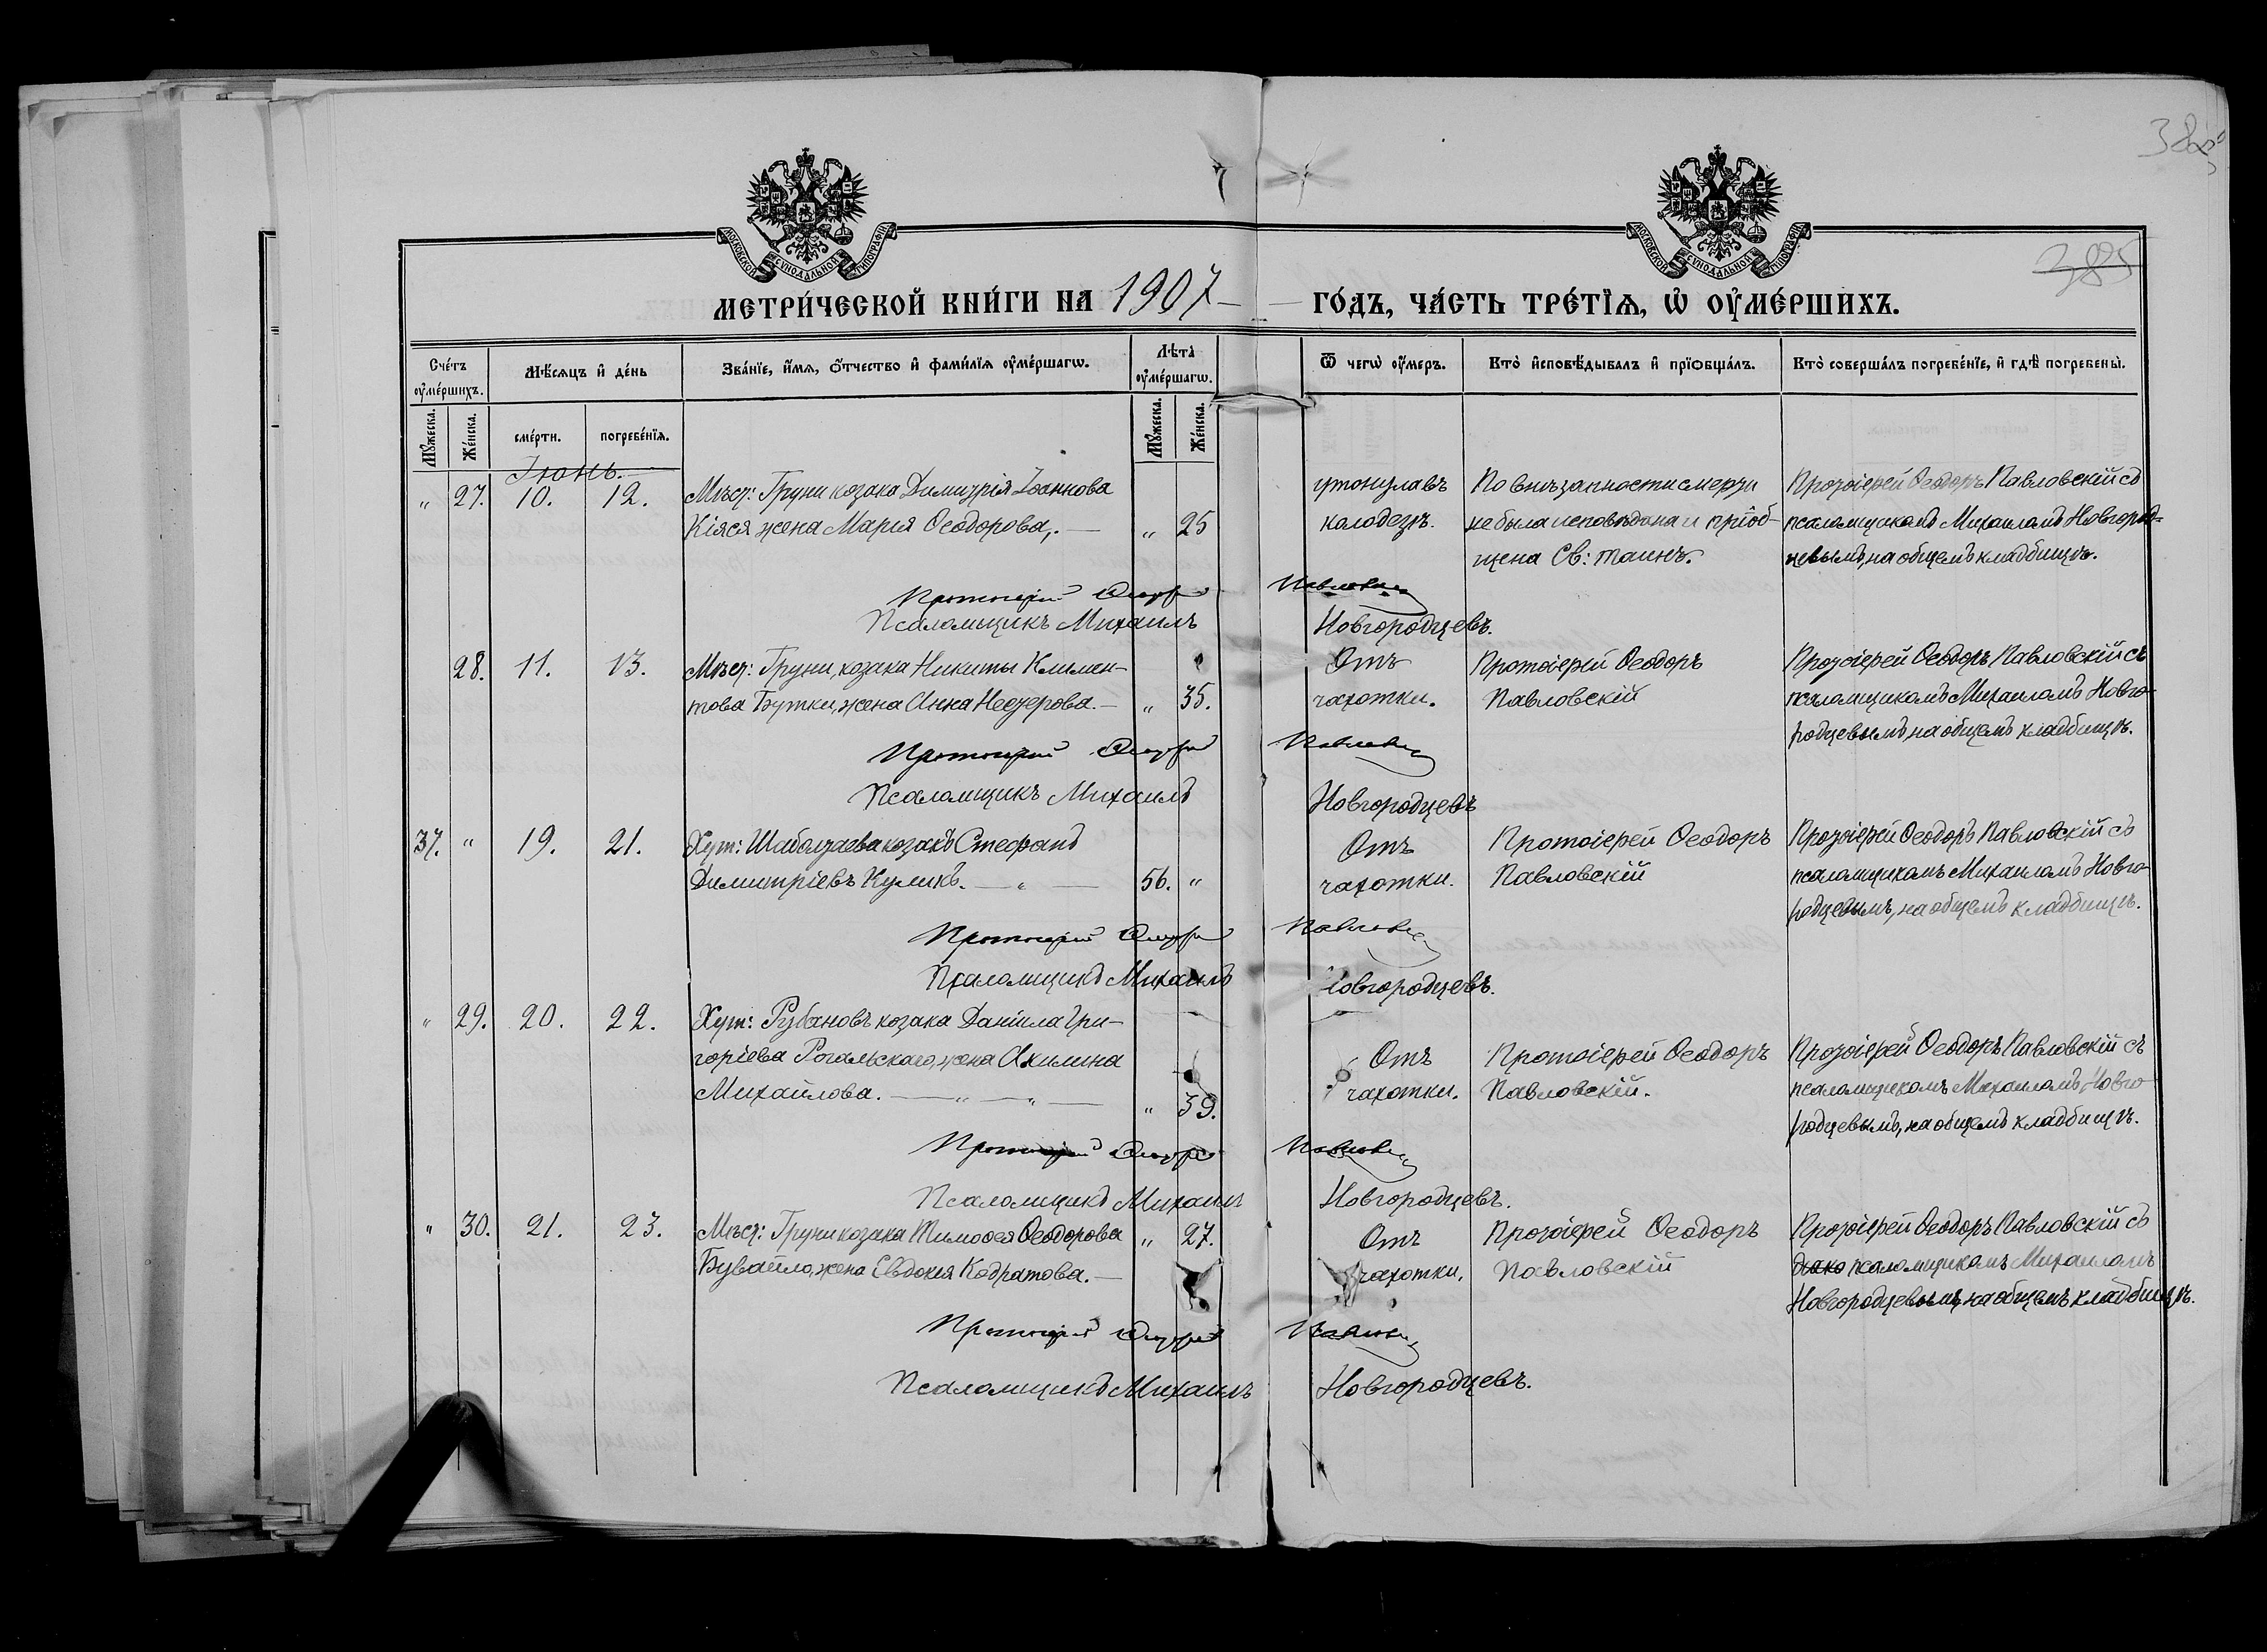 385
385
МОСКОВСКОЙ СѴНОДАЛЬНОЙ ТИПОГРАФІИ
МОСКОВСКОЙ СѴНОДАЛЬНОЙ ТИПОГРАФІИ
МЕТРИ́ЧЕСКОЙ КНИ́ГИ НА 1907 ГО́ДЪ, ЧА́СТЬ ТРЕ́ТІѦ, Ѡ҆ ОУ҆МЕ́РШИХЪ.
Сче́тъ оу҆ме́ршихъ.
Мѣ́сѧцъ и҆ де́нь
Зва́нїе, и҆́мѧ, ѻ҆́тчество и҆ фами́лїѧ оу҆ме́ршагѡ.
Лѣта̀ оу҆ме́ршагѡ.
Ѿ чегѡ̀ оу҆́меръ.
Кто̀ и҆сповѣ́дывалъ и҆ прїѡбща́лъ.
Кто̀ соверша́лъ погребе́нїе, и҆ гдѣ̀ погребены̀.
Мꙋ́жеска.
Же́нска.
сме́рти.
погребе́нїѧ.
Мꙋ́жеска.
Же́нска.
Іюнь.
„ 27. 10. 12. Мѣст: Груни козака Димитрія Іоаннова
Кіяся жена Марія Ѳеодорова,. — „ 25
утонула въ
колодезѣ.
По внѣзапности смерти
не была исповѣдана и пріоб-
щена Св: таинъ.
Протоіерей Ѳеодоръ Павловскій съ
псаломщикомъ Михаиломъ Новгород=
цевымъ, на общемъ кладбищѣ.
Протоіерей Ѳеодоръ Павловскій
Псаломщикъ Михаилъ Новгородцевъ.
28. 11. 13. Мѣст: Груни, козака Никиты Климен-
това Бутки, жена Анна Несторова. — „ 35.
Отъ
чахотки.
Протоіерей Ѳеодоръ
Павловскій
Протоіерей Ѳеодоръ Павловскій съ
псаломщикомъ Михаиломъ Новго-
родцевымъ, на общемъ кладбищѣ.
Протоіерей Ѳеодоръ Павловскій
Псаломщикъ Михаилъ Новгородцевъ
37. „ 19. 21. Хут: Шаболтаева козакъ Стефанъ
Димитріевъ Куликъ. — „ — 56. „
Отъ
чахотки.
Протоіерей Ѳеодоръ
Павловскій
Протоіерей Ѳеодоръ Павловскій съ
псаломщикомъ Михаиломъ Новго-
родцевымъ, на общемъ кладбищѣ.
Протоіерей Ѳеодоръ Павловскій
Псаломщикъ Михаилъ Новгородцевъ.
„ 29. 20. 22. Хут: Рубановъ козака Даніила Гри-
горіева Рогальскаго, жена Акилина
Михайлова. — „ — „ — „ 39.
Отъ
чахотки.
Протоіерей Ѳеодоръ
Павловскій.
Протоіерей Ѳеодоръ Павловскій съ
псаломщикомъ Михаиломъ Новго-
родцевымъ, на общемъ кладбищѣ.
Протоіерей Ѳеодоръ Павловскій
Псаломщикъ Михаилъ Новгородцевъ.
„ 30. 21. 23. Мѣст: Груни козака Тимоѳея Ѳеодорова „ 27.
Бувайло, жена Евдокія Кодратова. —
Отъ
чахотки.
Протоіерей Ѳеодоръ
Павловскій
Протоіерей Ѳеодоръ Павловскій съ
дьяко псаломщикомъ Михаиломъ
Новгородцевымъ, на общемъ кладбищѣ.
Протоіерей Ѳеодоръ Павловскій
Псаломщикъ Михаилъ Новгородцевъ.